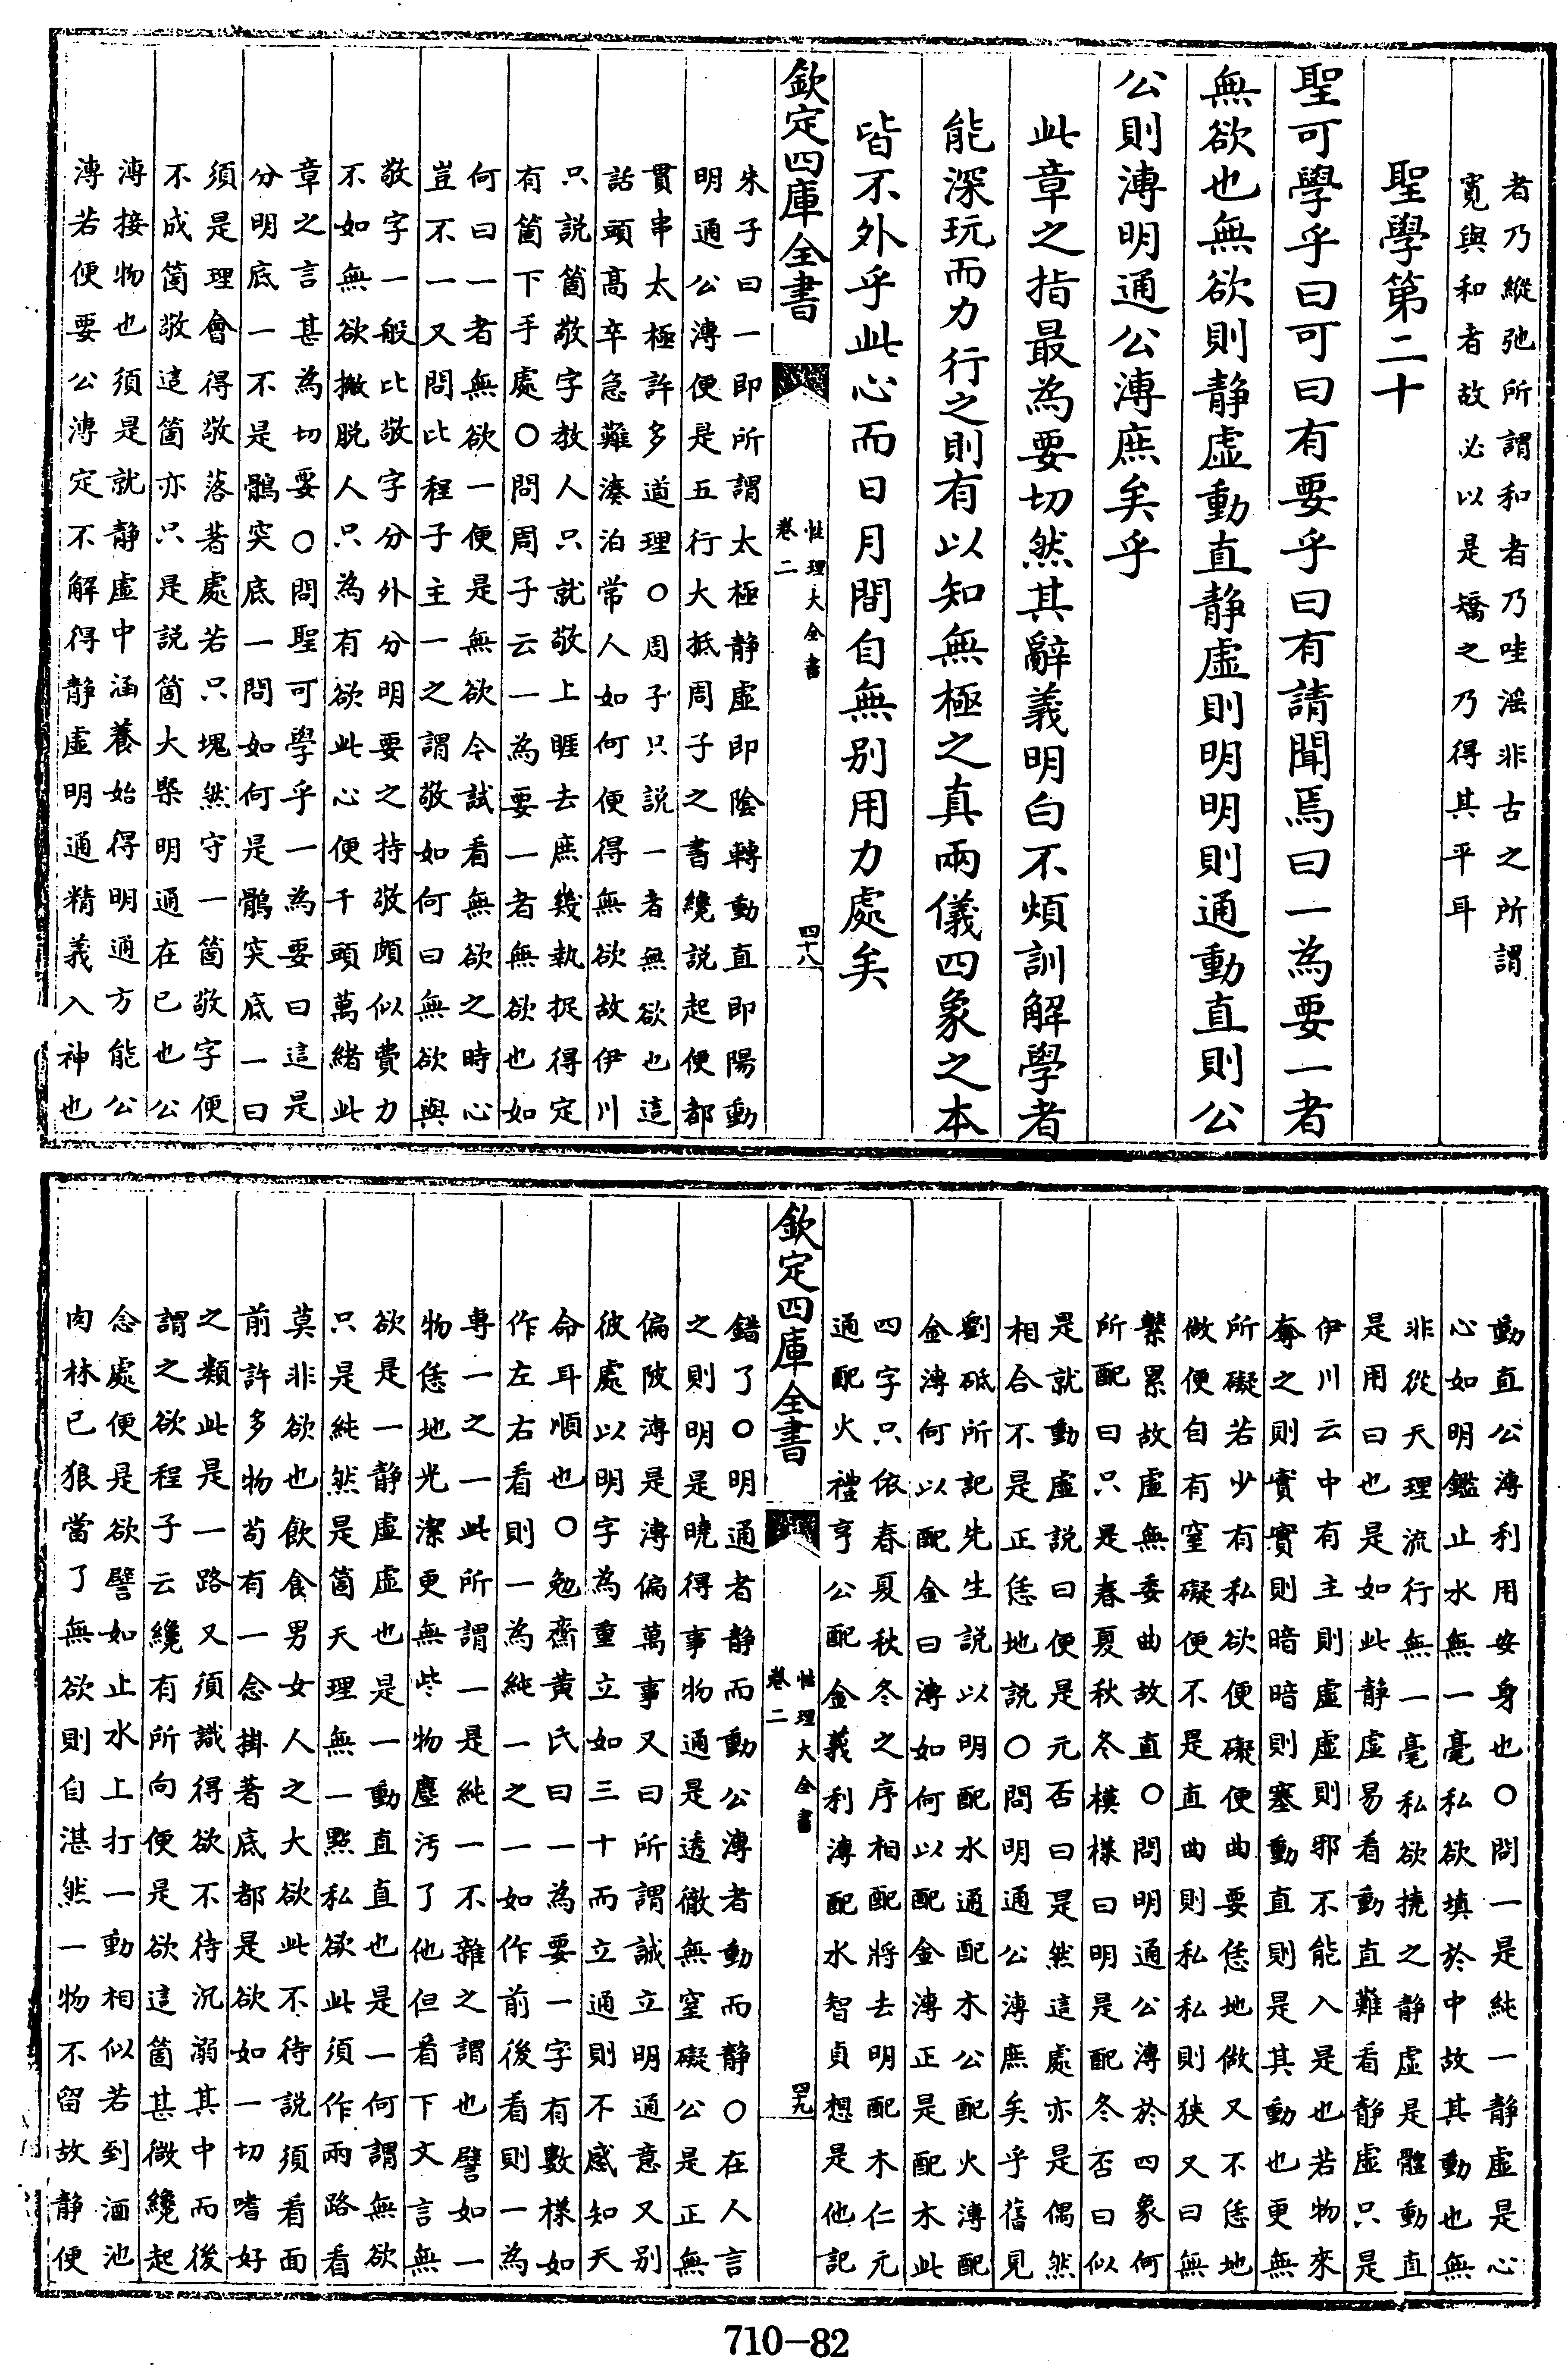 者乃縱弛所謂和者乃哇淫非古之所謂
寛與和者故必以是矯之乃得其平耳
聖學第二十
聖可學乎曰可曰有要乎曰有請聞焉曰一為要一者
無欲也無欲則静虚動直静虚則明明則通動直則公
公則溥明通公溥庶矣乎
此章之指最為要切然其辭義明白不煩訓解學者
能深玩而力行之則有以知無極之真兩儀四象之本
皆不外乎此心而日月間自無别用力處矣
欽定四庫全書
性理大全書
卷二
四十八
朱子曰一即所謂太極静虚即隂轉動直即陽動
明通公溥便是五行大抵周子之書纔説起便都
貫串太極許多道理○周子只説一者無欲也這
話頭髙卒急難湊泊常人如何便得無欲故伊川
只説箇敬字教人只就敬上睚去庶幾執捉得定
有箇下手處○問周子云一為要一者無欲也如
何曰一者無欲一便是無欲今試看無欲之時心
豈不一又問比程子主一之謂敬如何曰無欲與
敬字一般比敬字分外分明要之持敬頗似費力
不如無欲撇脱人只為有欲此心便千頭萬緒此
章之言甚為切要○問聖可學乎一為要曰這是
分明底一不是鶻突底一問如何是鶻突底一曰
須是理會得敬落著處若只塊然守一箇敬字便
不成箇敬這箇亦只是説箇大槩明通在已也公
溥接物也須是就静虚中涵養始得明通方能公
溥若便要公溥定不解得静虚明通精義入神也
動直公溥利用安身也○問一是純一静虚是心
心如明鑑止水無一毫私欲填於中故其動也無
非從天理流行無一毫私欲撓之静虚是體動直
是用曰也是如此静虚易看動直難看静虚只是
伊川云中有主則虚虚則邪不能入是也若物來
奪之則實實則暗暗則塞動直則是其動也更無
所礙若少有私欲便礙便曲要恁地做又不恁地
做便自有窒礙便不是直曲則私私則狹又曰無
繫累故虚無委曲故直○問明通公溥於四象何
所配曰只是春夏秋冬模様曰明是配冬否曰似
是就動處説曰便是元否曰是然這處亦是偶然
相合不是正恁地説○問明通公溥庶矣乎舊見
劉砥所記先生説以明配水通配木公配火溥配
金溥何以配金曰溥如何以配金溥正是配木此
四字只依春夏秋冬之序相配將去明配木仁元
通配火禮亨公配金義利溥配水智貞想是他記
欽定四庫全書
性理大全書
卷二
四十九
錯了○明通者静而動公溥者動而静○在人言
之則明是曉得事物通是透徹無窒礙公是正無
偏陂溥是溥徧萬事又曰所謂誠立明通意又别
彼處以明字為重立如三十而立通則不惑知天
命耳順也○勉齋黄氏曰一為要一字有數様如
作左右看則一為純一之一如作前後看則一為
專一之一此所謂一是純一不雜之謂也譬如一
物恁地光潔更無些物塵汚了他但看下文言無
欲是一静虚虚也是一動直直也是一何謂無欲
只是純然是箇天理無一㸃私欲此須作兩路看
莫非欲也飲食男女人之大欲此不待説須看面
前許多物茍有一念掛著底都是欲如一切嗜好
之類此是一路又須識得欲不待沉溺其中而後
謂之欲程子云纔有所向便是欲這箇甚微纔起
念處便是欲譬如止水上打一動相似若到酒池
肉林已狼當了無欲則自湛然一物不留故静便
710-82